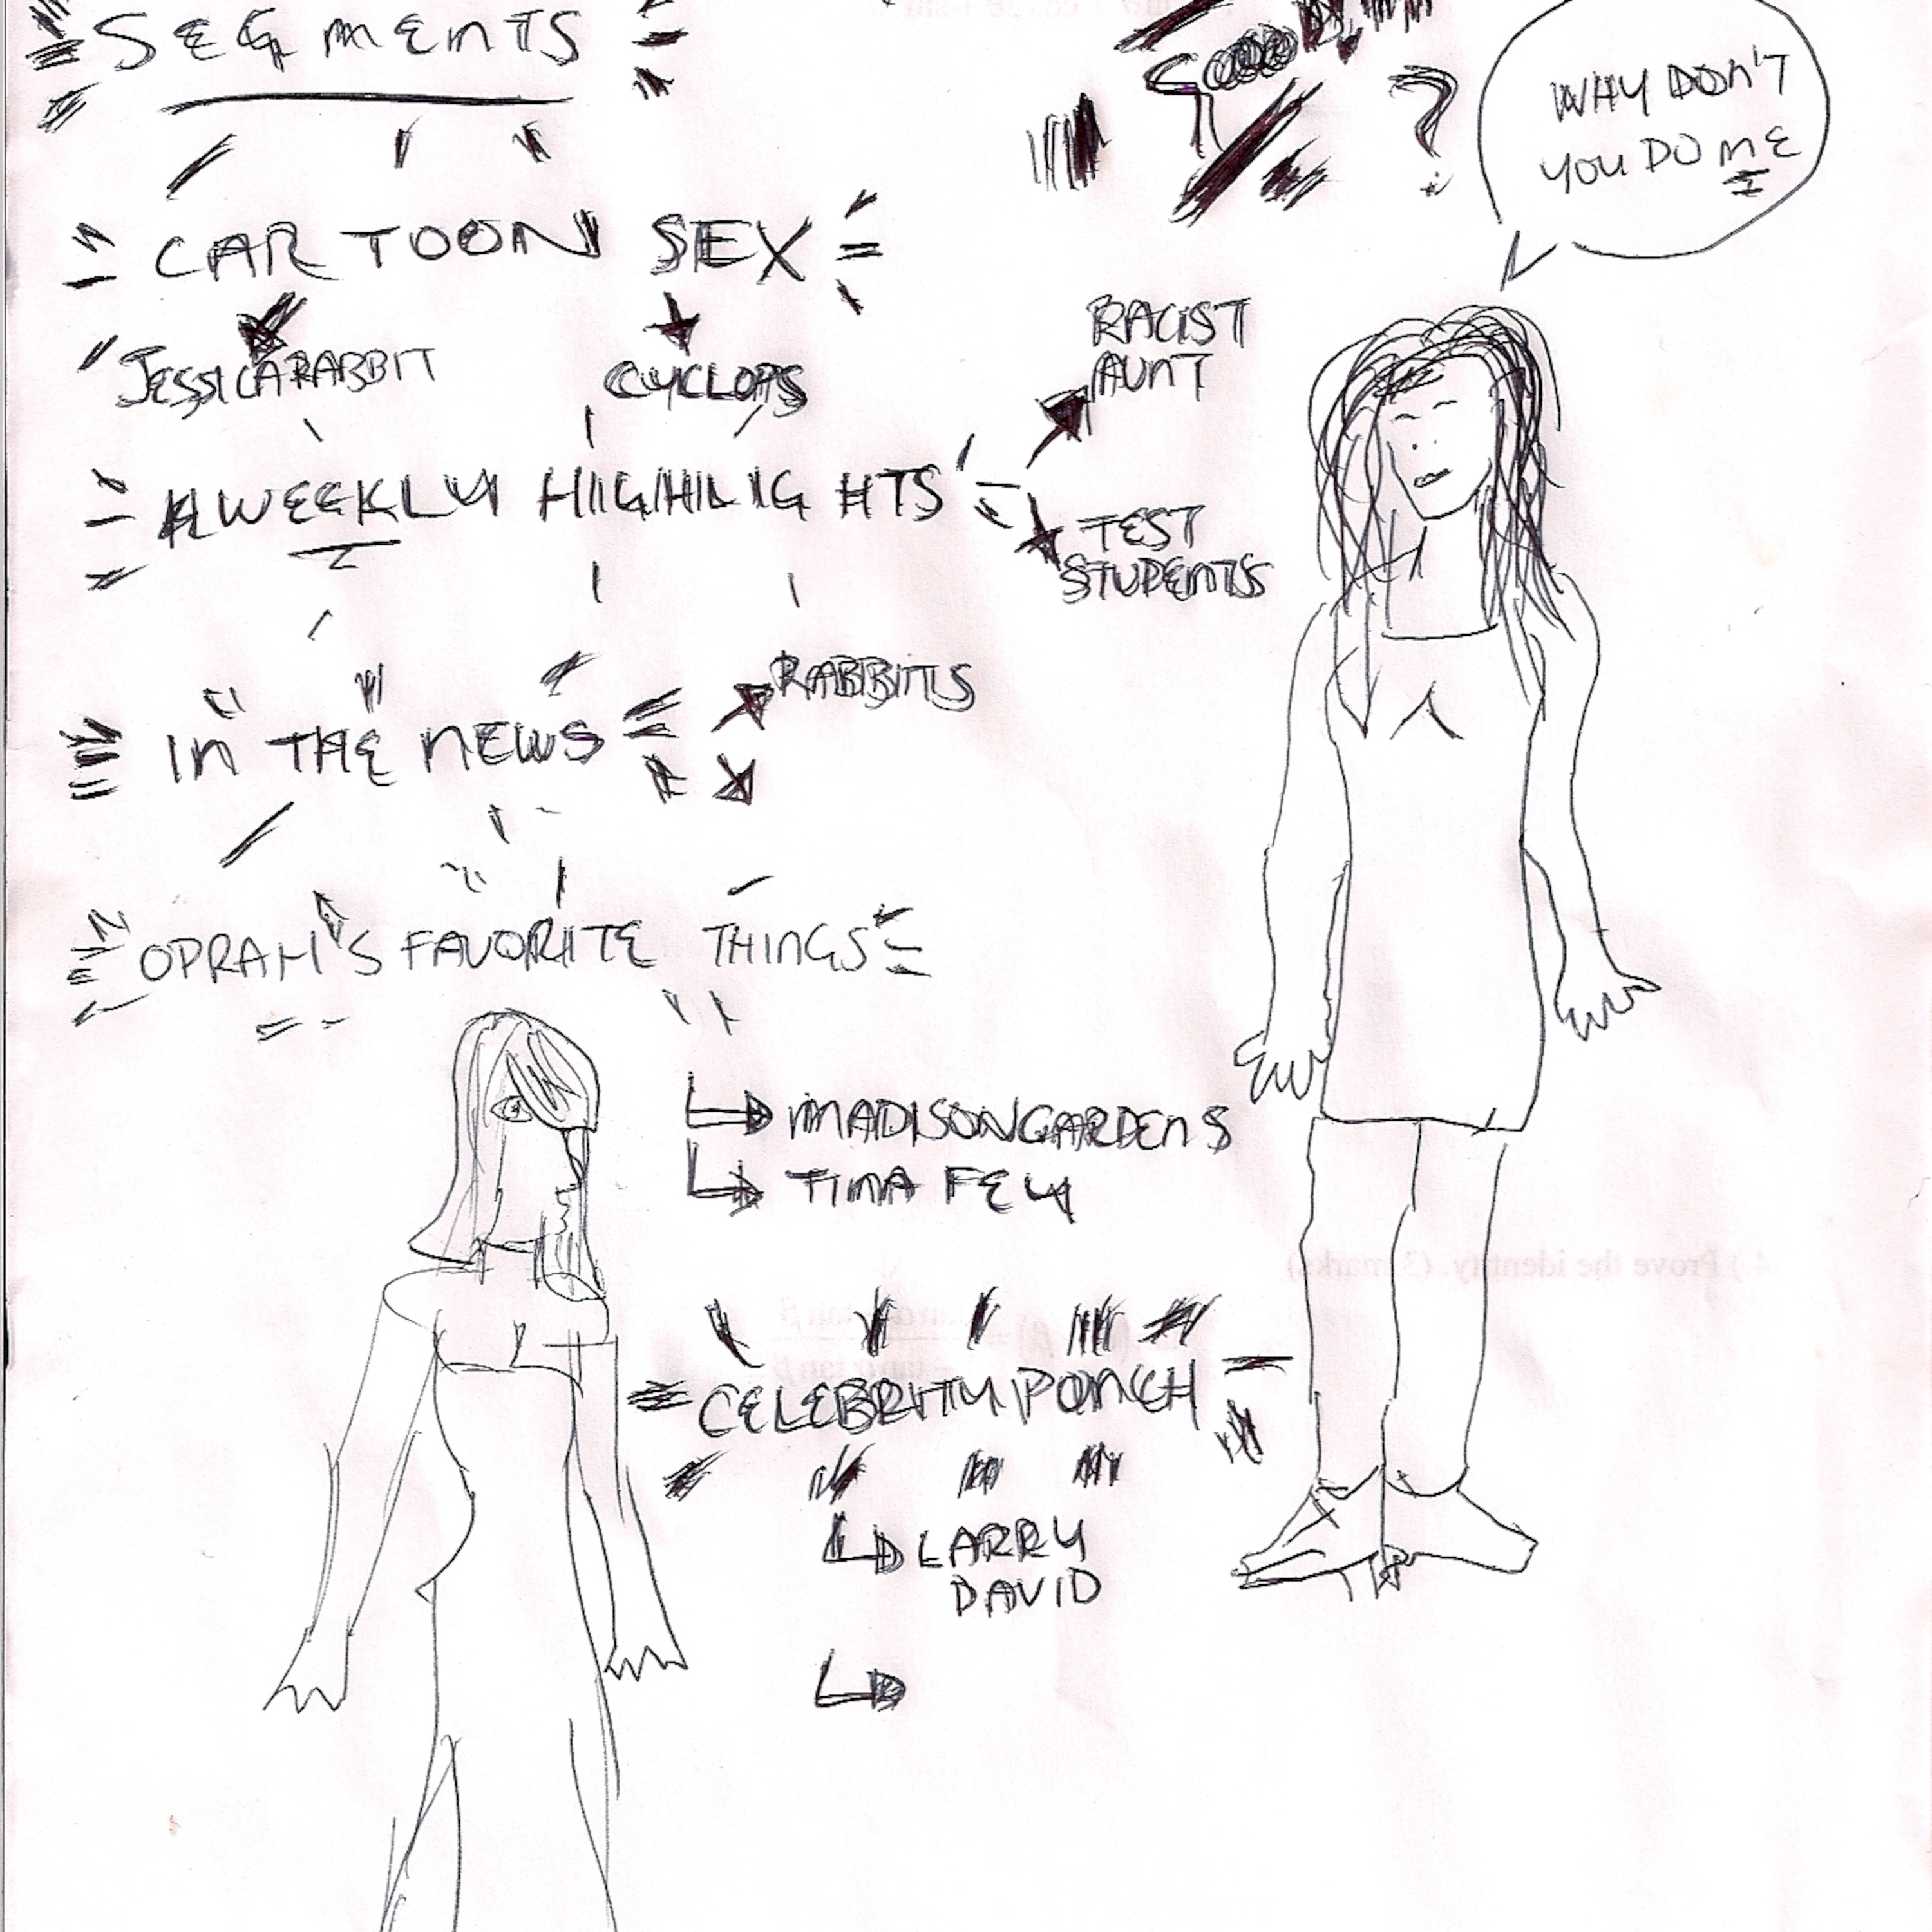 SEGMENTS
WHY DON'T
YOU DO ME
?
CARTOON SEX
JESSICA RABBIT
CYCLOPS
RACIST
AUNT
WEEKLY HIGHLIGHTS
TEST
STUDENTS
RABBITS
IN THE NEWS
OPRAH'S FAVORITE THINGS
MADISON GARDENS
TINA FEY
4.) Prove the identity. (3 marks)
CELEBRITY PONCH
LARRY
DAVID